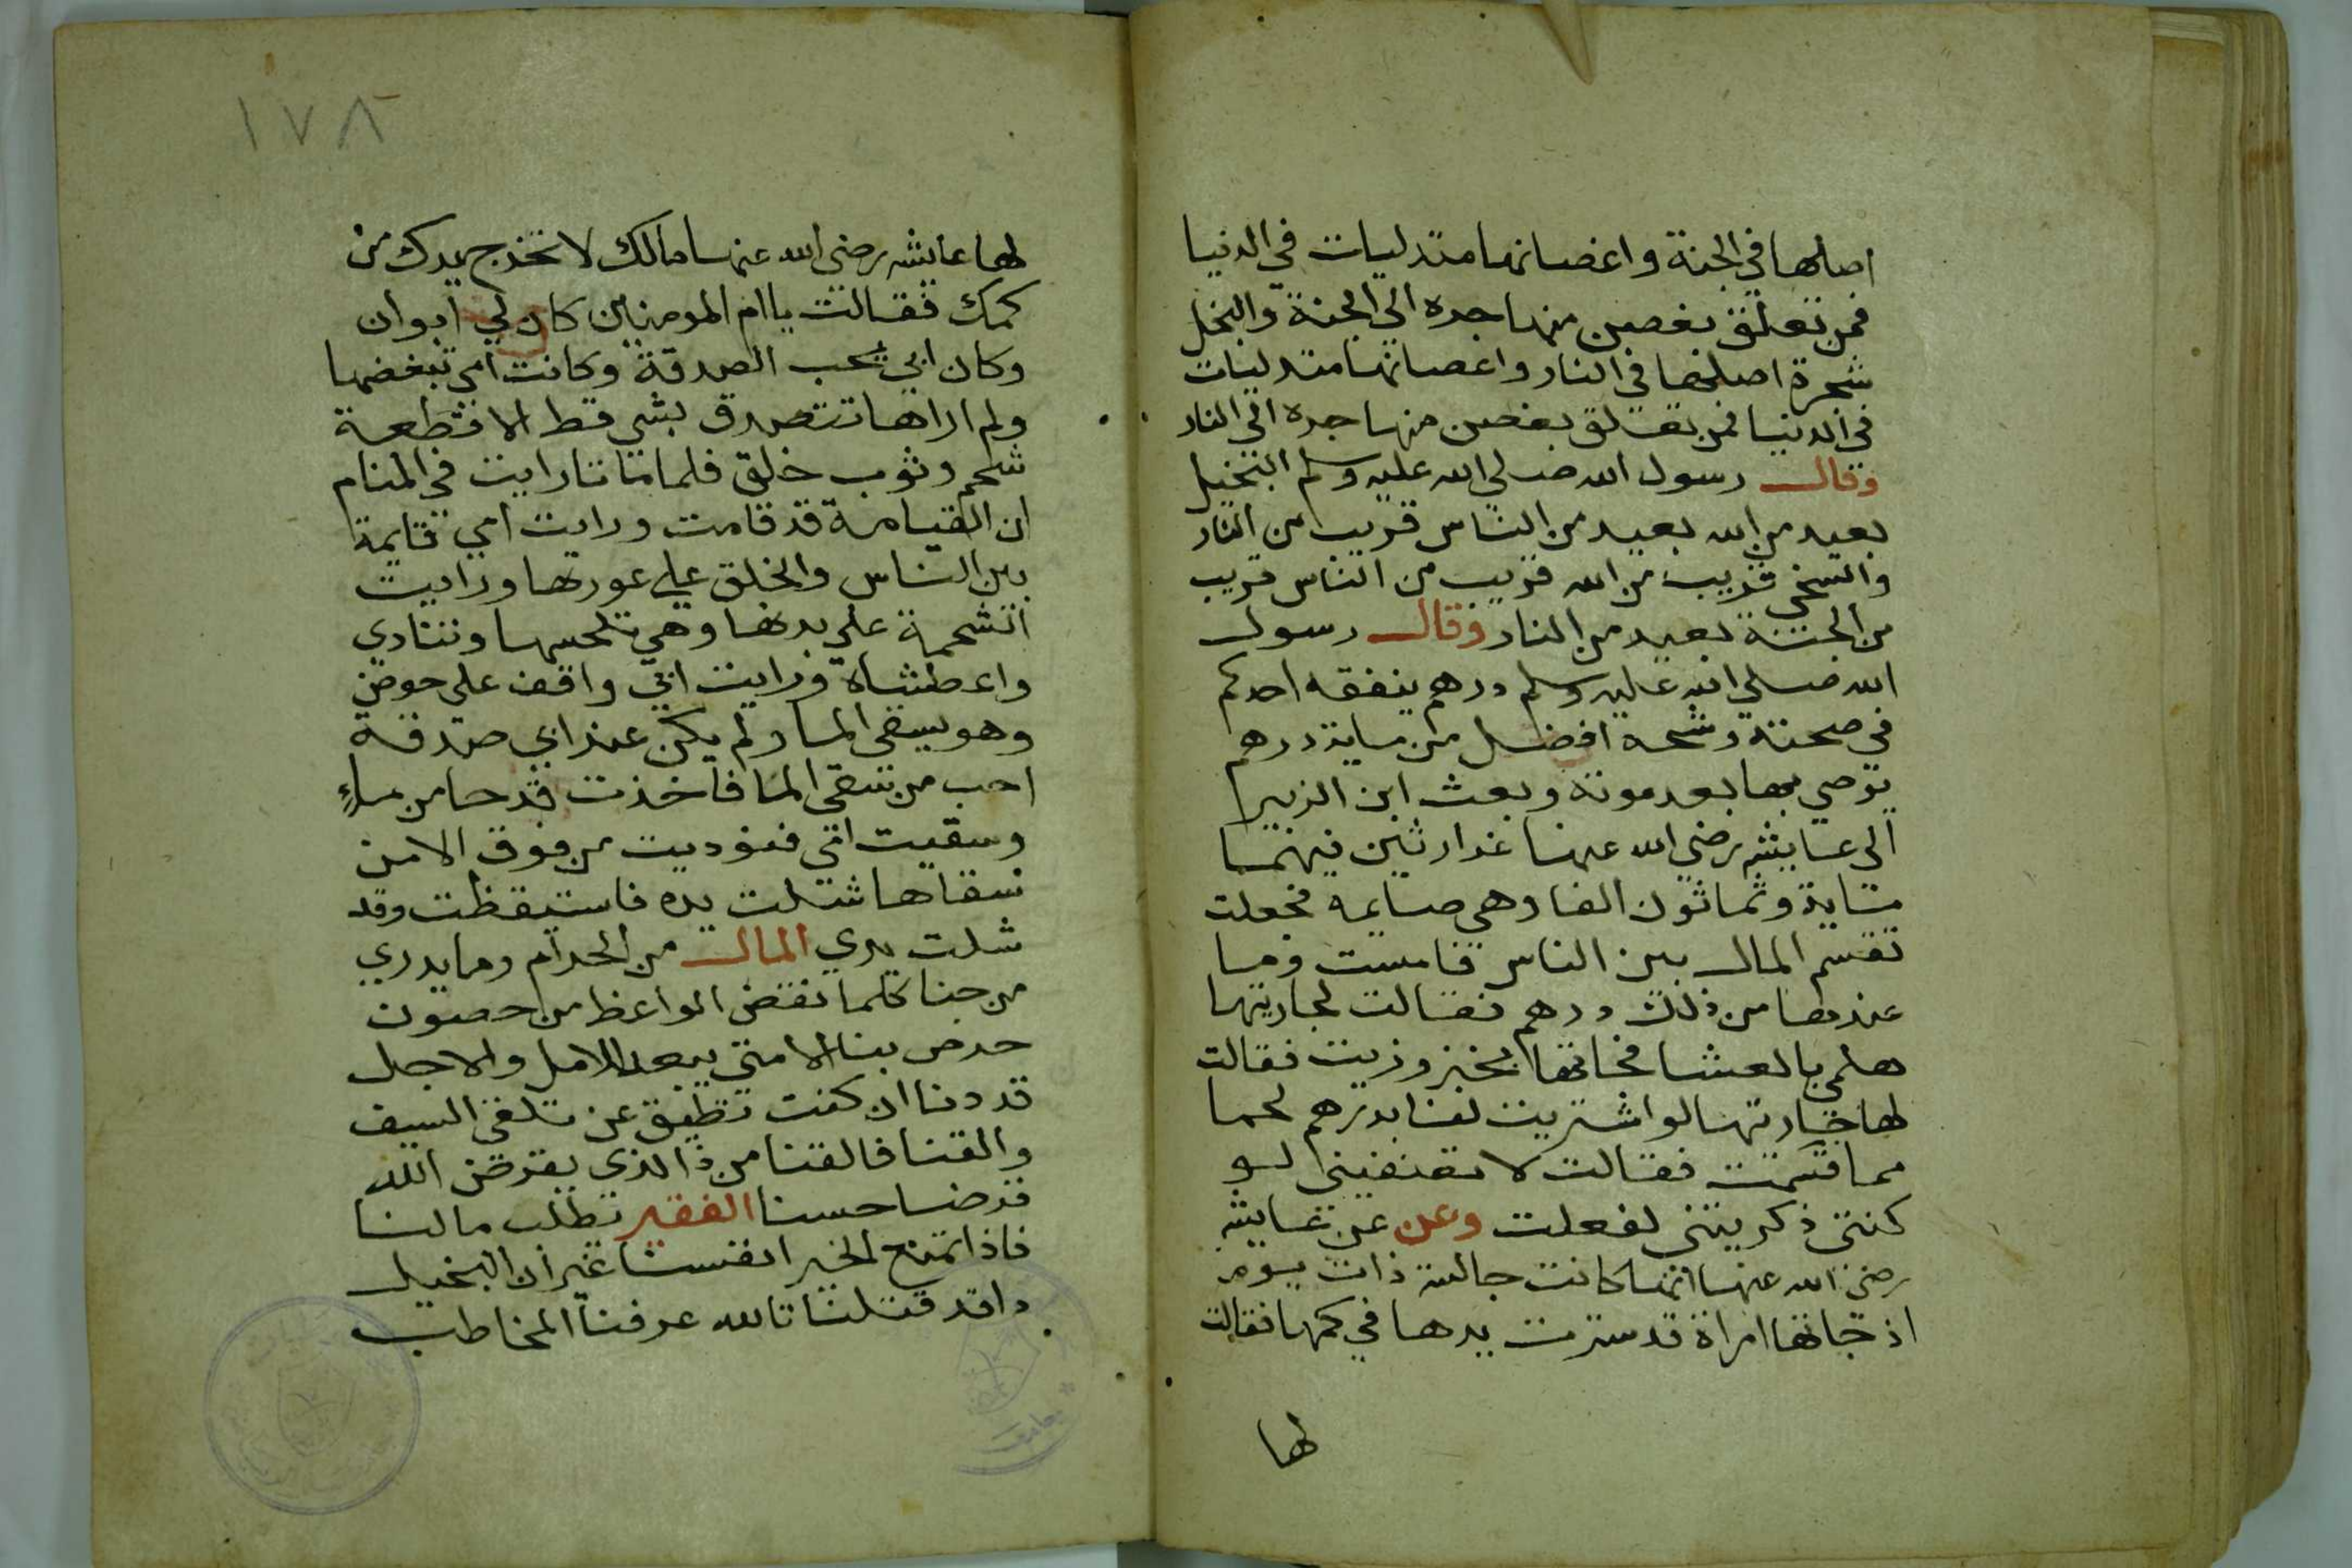 اصلها في الجنة واغصانها متدليات في الدنيا
فمن تعلق بغصن منها جره الي الجنة والبخل
شجرة اصلها في النار واغصانها متدليات
في الدنيا فمن تعلق بغصن منها جره الي النار
وقال رسول الله صلي الله عليه وسلم البخيل
بعيد من الله بعيد من الناس قريب من النار
والسخي قريب من الله قريب من الناس قريب
من الجنة بعيد من النار وقال رسول
الله صلي الله عليه وسلم درهم ينفقه احدكم
في صحته وشحه افضل من ماية درهم
يوصي بها بعد موته وبعث ابن الزبير
الى عايشه رضي الله عنها غرارتين فيهما
ماية وثمانون الفا وهي صايمه فجعلت
تقسم المال بين الناس فامست وما
عندها من ذلك درهم فقالت لجاريتها
هلمي بالعشا فجاتها بخبز وزيت فقالت
لها جاريتها لو اشتريت لنا بدرهم لحما
مما قسمت فقالت لا تعنفيني لو
كنتي ذكرتيني لفعلت وعن عن عايشه
رضي الله عنها انها كانت جالسة ذات يوم
اذ جاتها امراة قد سترت يدها في كمها فقالت
لها
١٧٨
لها عايشه رضي الله عنها مالك لا تخرج يدك من
كمك فقالت يا ام المومنين كان لي ابوان
وكان ابي يحب الصدقة وكانت امي تبغضها
ولم اراها تتصدق بشي قط الا قطعة
شحم وثوب خلق فلما ماتا رايت في المنام
ان القيامة قد قامت ورايت امي قايمة
بين الناس والخلق علي عورتها ورايت
الشحمة علي يدها وهي تلحسها وتنادي
واعطشاه ورايت ابي واقف على حوض
وهو يسقي الما ولم يكن عند ابي صدقة
احب من سقي الما فاخذت قدحا من ماءٍ
وسقيت امي فنوديت من فوق الا من
سقاها شلت يده فاستيقظت وقد
شلت يدي المال من الحرام وما يدري
من جنا كلما نقض الواعظ من حصون
حرص بنا الامتي يبعد الامل والاجل
قد دنا ان كنت تطيق عن تلقي السيف
والقنا فالقنا من ذا الذي يقرض الله
قرضا حسنا الفقير تطلب مالنا
فاذا تمنع الخير انفسنا غير ان البخيل
داقد قتلنا تالله عرفنا المخاطب